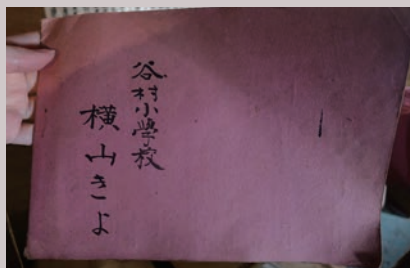 谷村小學校
横山きよ